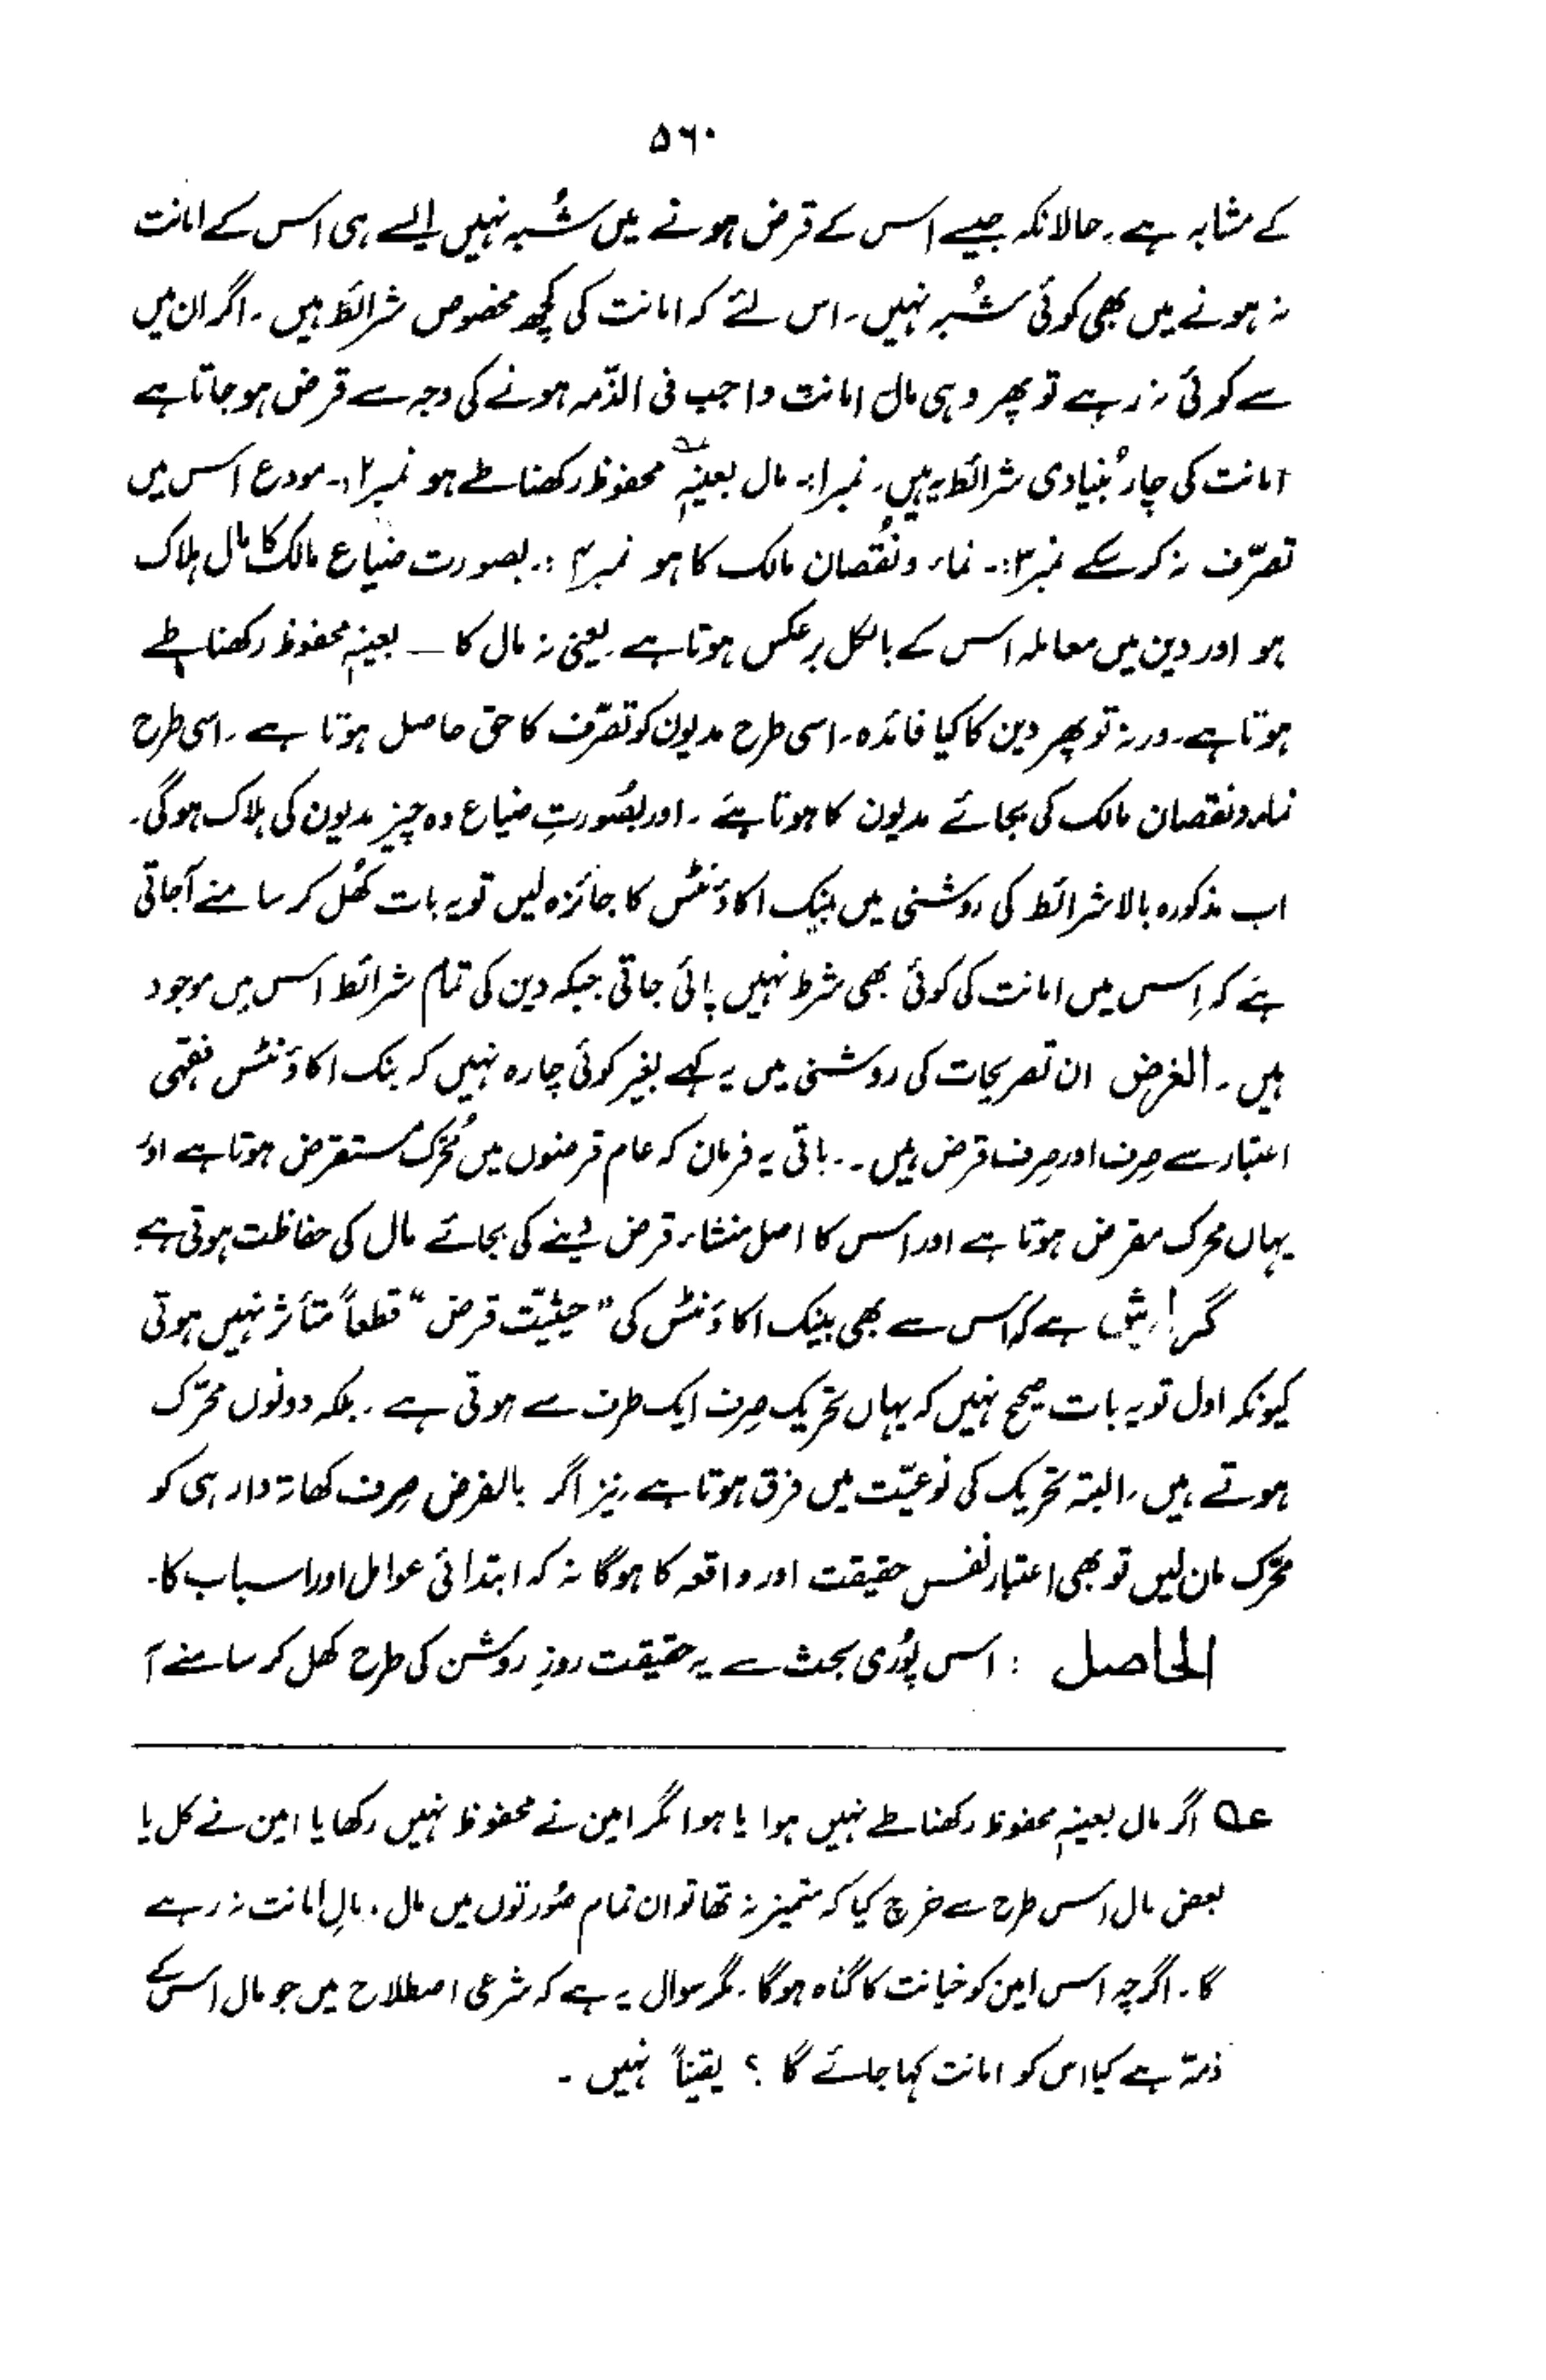 ۵۶۰
کے مشابہ ہے۔ حالانکہ جیسے اس کے قرض ہونے میں شُبہ نہیں ایسے ہی اس کے امانت
نہ ہونے میں بھی کوئی شُبہ نہیں۔ اس لئے کہ امانت کی کچھ مخصوص شرائط ہیں۔ اگر ان میں
سے کوئی نہ رہے تو پھر وہی مال امانت واجب فی الذّمہ ہونے کی وجہ سے قرض ہو جاتا ہے
امانت کی چار بُنیادی شرائط یہ ہیں۔ نمبر۱:۔ مال بعینہٖ عہ محفوظ رکھنا طے ہو نمبر۲:۔ مودع اس میں
تصرّف نہ کر سکے نمبر۳:۔ نماء ونُقصان مالک کا ہو نمبر۴:۔ بصورت ضیاع مالک کا مال ہلاک
ہو اور دین میں معاملہ اس کے بالکل برعکس ہوتا ہے یعنی نہ مال کا ــ بعینہٖ محفوظ رکھنا طے
ہوتا ہے۔ ورنہ تو پھر دین کا کیا فائدہ۔ اسی طرح مدیون کو تصرّف کا حق حاصل ہوتا ہے۔ اسی طرح
نماء ونقصان مالک کی بجائے مدیون کا ہوتا ہے۔ اور بصُورتِ ضیاع وہ چیز مدیون کی ہلاک ہوگی۔
اب مذکورہ بالا شرائط کی روشنی میں بینک اکاؤنٹس کا جائزہ لیں تو یہ بات کھُل کر سامنے آجاتی
ہے کہ اِس میں امانت کی کوئی بھی شرط نہیں پائی جاتی جبکہ دین کی تمام شرائط اس میں موجود
ہیں۔ الغرض ان تصریحات کی روشنی میں یہ کہے بغیر کوئی چارہ نہیں کہ بنک اکاؤنٹس فقہی
اعتبار سے صِرف اور صِرف قرض ہیں۔۔ باقی یہ فرمان کہ عام قرضوں میں مُحَرِّک مُستقرض ہوتا ہے اور
یہاں محرک مقرض ہوتا ہے اور اس کا اصل منشاء قرض دینے کی بجائے مال کی حفاظت ہوتی ہے
گزارش ہے کہ اس سے بھی بینک اکاؤنٹس کی "حیثیّت قرض" قطعاً متأثر نہیں ہوتی
کیونکہ اول تو یہ بات صحیح نہیں کہ یہاں تحریک صِرف ایک طرف سے ہوتی ہے۔ بلکہ دونوں محرّک
ہوتے ہیں۔ البتہ تحریک کی نوعیّت میں فرق ہوتا ہے۔ نیز اگر بالفرض صِرف کھاتہ دار ہی کو
محرّک مان لیں تو بھی اعتبار نفس حقیقت اور واقعہ کا ہوگا نہ کہ ابتدائی عوامل اور اسباب کا۔
الحاصل : اس پُوری بحث سے یہ حقیقت روزِ روشن کی طرح کھل کر سامنے آ
عہ اگر مال بعینہٖ محفوظ رکھنا طے نہیں ہوا یا ہوا مگر امین نے محفوظ نہیں رکھا یا امین نے کل یا
بعض مال اس طرح سے خرچ کیا کہ متمیز نہ تھا تو ان تمام صُورتوں میں مال، مالِ امانت نہ رہے
گا۔ اگرچہ اس امین کو خیانت کا گناہ ہوگا۔ مگر سوال یہ ہے کہ شرعی اصطلاح میں جو مال اس کے
ذمّہ ہے کیا اس کو امانت کہا جائے گا؟ یقیناً نہیں۔